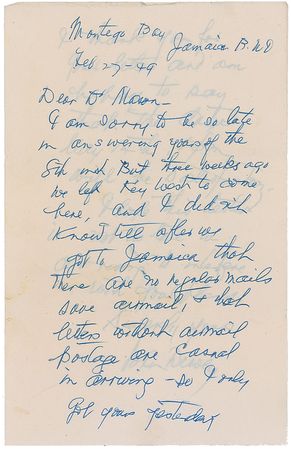 Montego Bay
Jamaica B.W.I
Feb 27-49
Dear Dr Mason-
I am sorry to be so late
in answering yours of the
8th inst, But three weeks ago
we left Key West to come
here, and I didn't
Know till after we
got to Jamaica that
there are no regular mails
save airmail, & that
letters without airmail
postage are casual
in arriving - so I only
Got yours yesterday